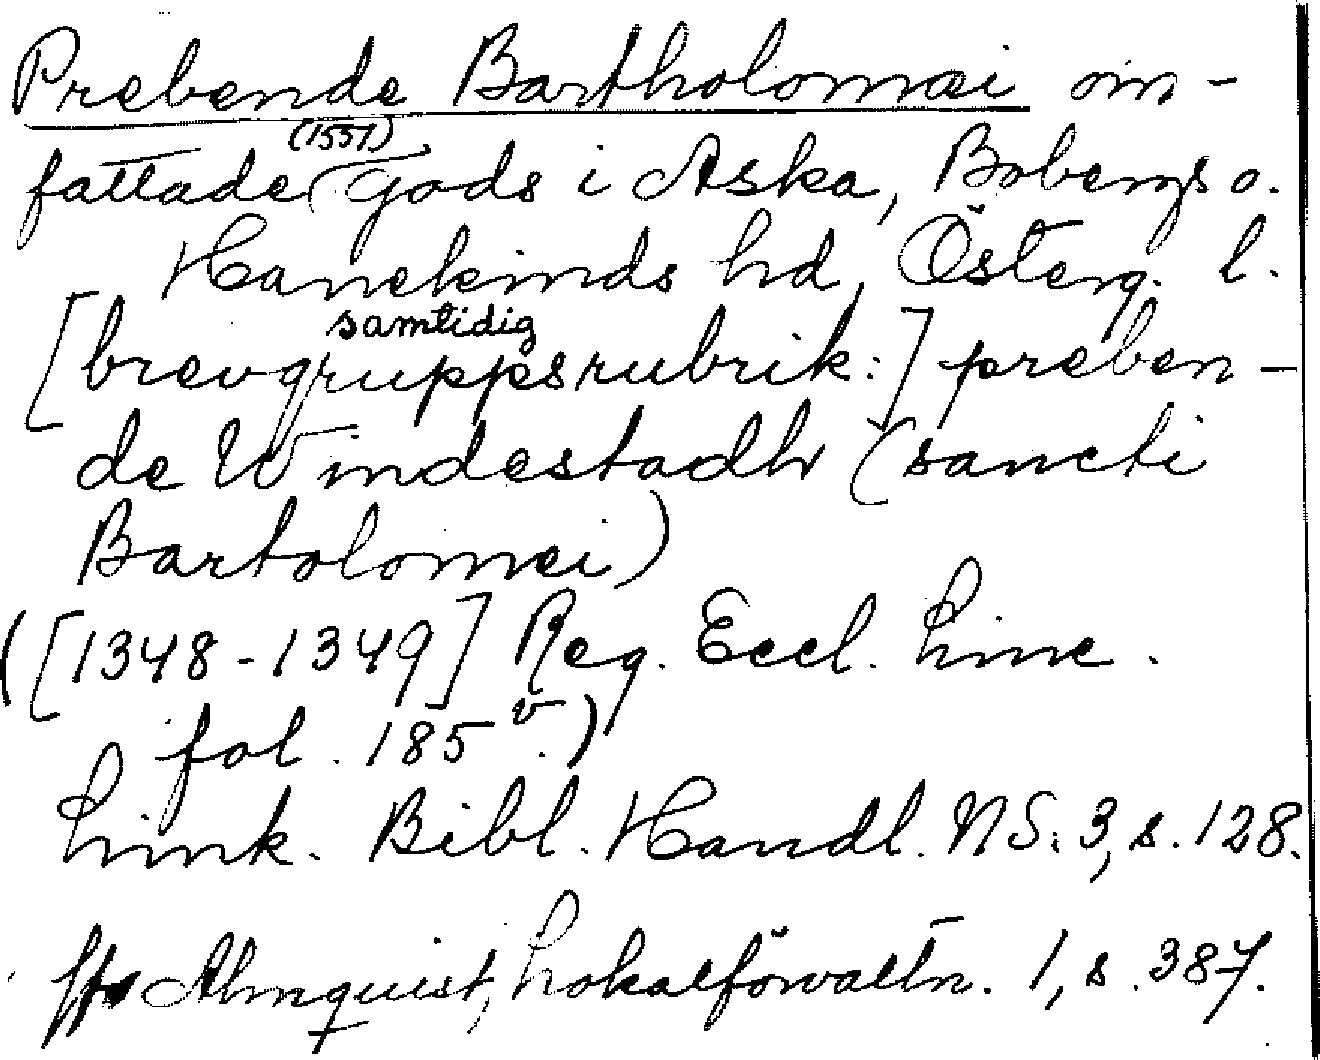 Prebende Bartholomæi om-
(1551)
fattade gods i Aska, Bobergs o.
Hanekinds hd, Österg. l.
samtidig
[brevgruppsrubrik:] preben-
de Windestadh (sancti
Bartolomei)
([1348-1349] Reg. Eccl. Linc.
fol. 185 v.)
Link. Bibl. Handl. NS: 3, s. 128.
Almquist, Lokalförvaltn. 1, s. 387.